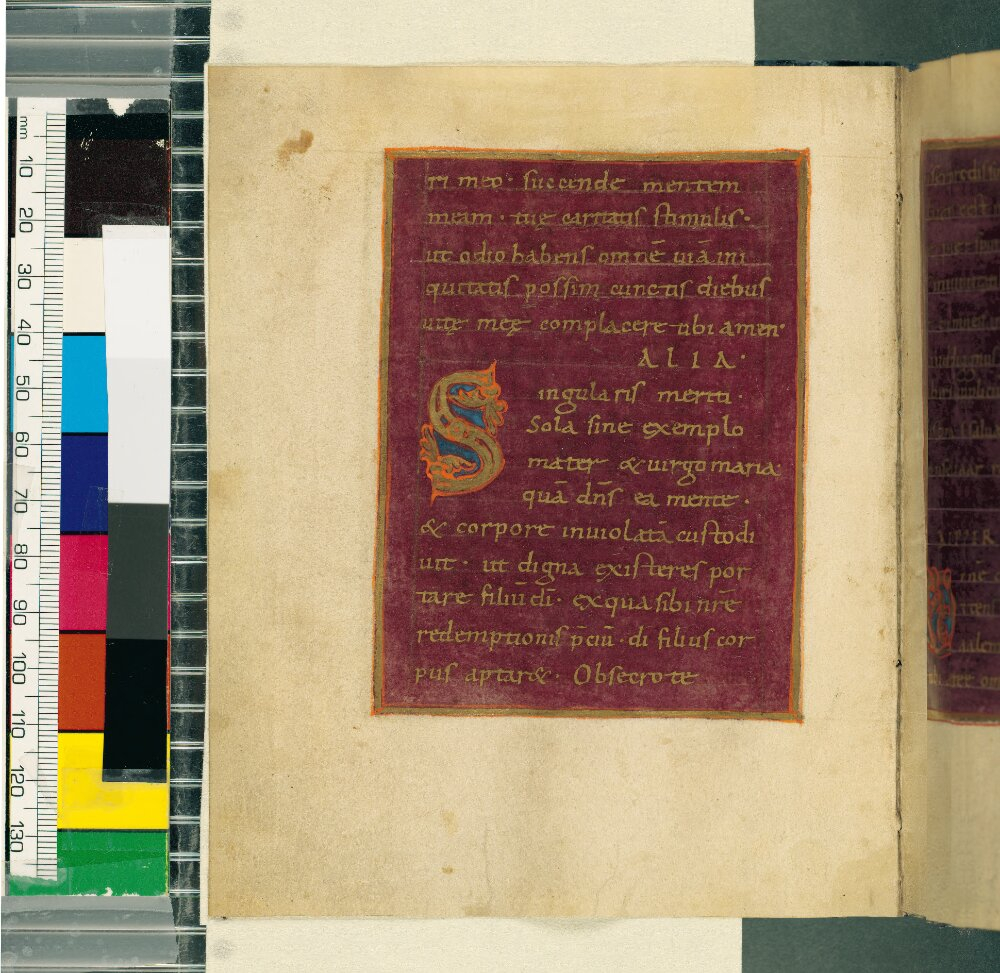 ri meo · succende mentem
meam · tuę caritatis stimulis ·
ut odio habens omnē uiā ini
quitatis possim cunctis diebus
uitę meę complacere tibi amen ·
ALIA ·
Singularis meriti ·
Sola sine exemplo
mater & uirgo maria
quā dn̄s ea mente ·
& corpore inuiolatā custodi
uit · ut digna existeres por
tare filiū dī · ex qua sibi nr̄ę
redemptionis p̄ciū · dī filius cor
pus aptar& · Obsecro te
mm 10 20 30 40 50 60 70 80 90 100 110 120 130